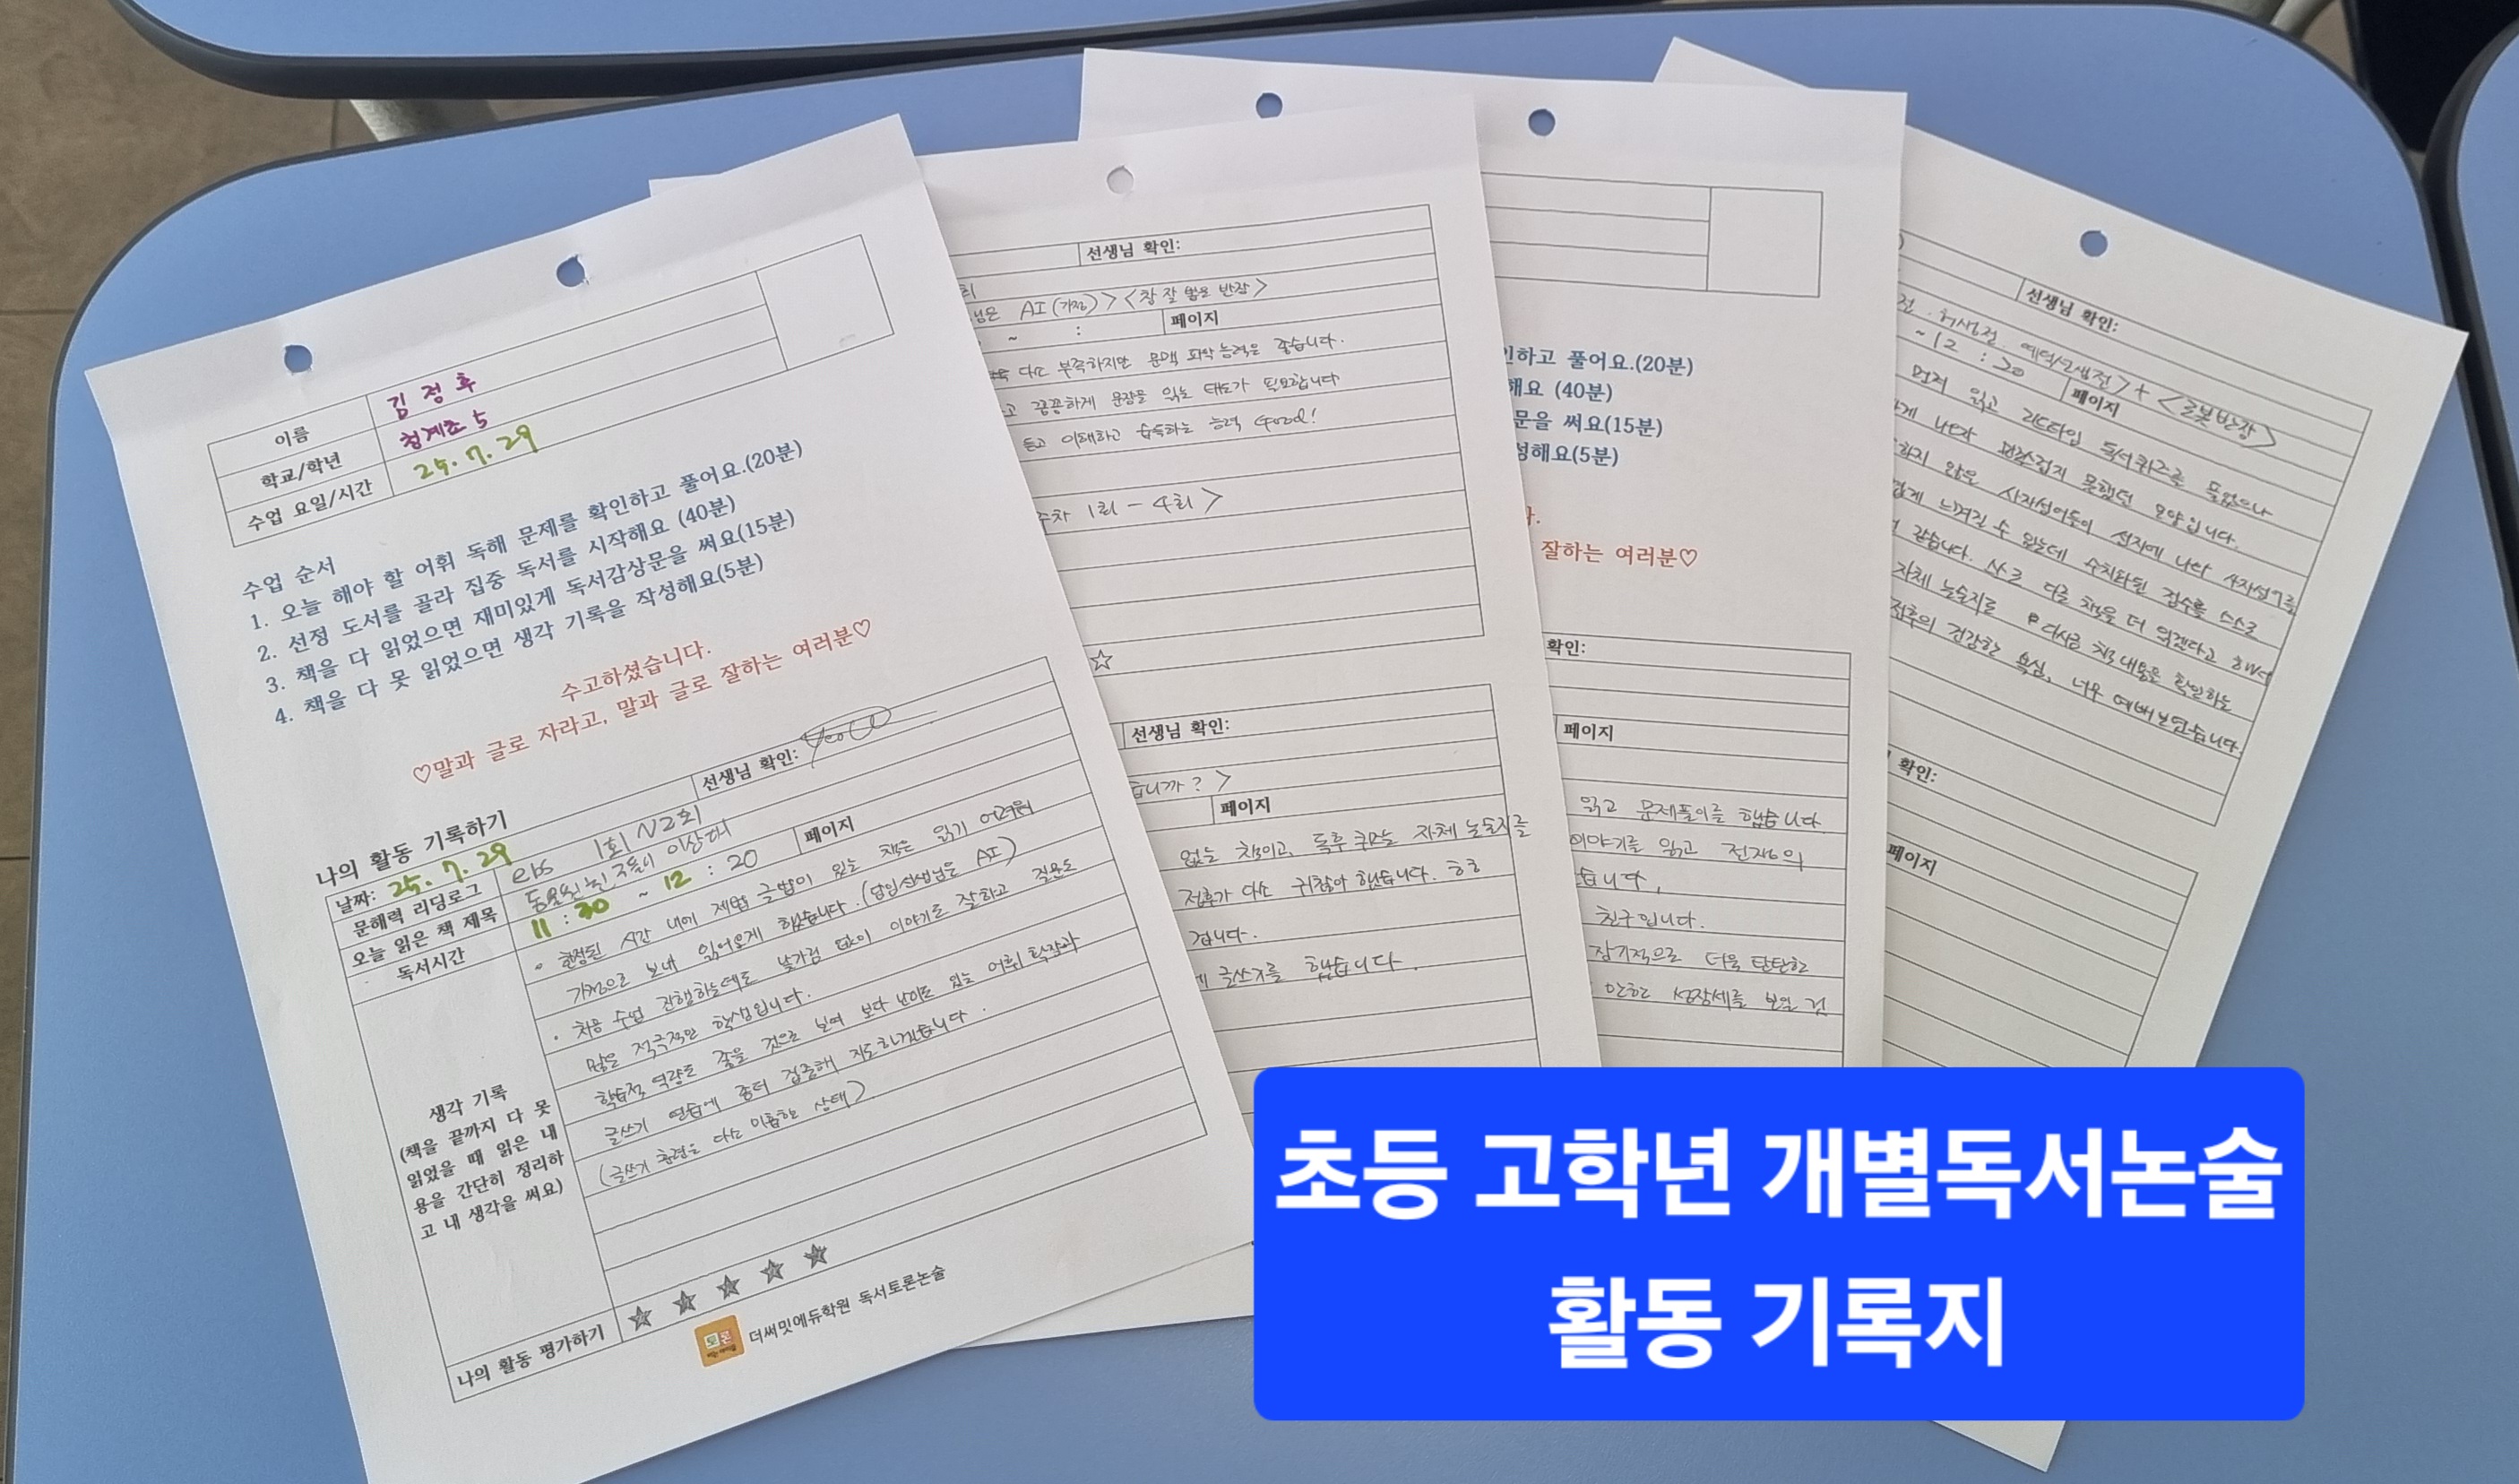 이름 김정후
학교/학년 청계초 5
수업 요일/시간 25.7.29
수업 순서
1. 오늘 해야 할 어휘 독해 문제를 확인하고 풀어요.(20분)
2. 선정 도서를 골라 집중 독서를 시작해요 (40분)
3. 책을 다 읽었으면 재미있게 독서감상문을 써요(15분)
4. 책을 다 못 읽었으면 생각 기록을 작성해요(5분)
수고하셨습니다.
♡말과 글로 자라고, 말과 글로 잘하는 여러분♡
나의 활동 기록하기
날짜: 25.7.29 선생님 확인:
문해력 리딩로그 ebs 1회 N2회
오늘 읽은 책 제목
독서시간 11:30 ~ 12:20 페이지
생각 기록
(책을 끝까지 다 못
읽었을 때 읽은 내
용을 간단히 정리하
고 내 생각을 써요)
· 한정된 시간 내에 제법 글밥이 있는 책은 읽기 어려워
가정으로 보내 읽어오게 했습니다.(담임선생님은 AI)
· 처음 수업 진행하는데도 낯가림 없이 이야기도 잘하고 질문도
많은 적극적인 학생입니다.
학습적 역량도 좋을 것으로 보여 보다 난이도 있는 어휘 확장과
글쓰기 연습에 좀더 집중해 지도하겠습니다.
(글쓰기 훈련은 다소 미흡한 상태)
나의 활동 평가하기 ★ ★ ★ ★ ★
더써밋에듀학원 독서토론논술
선생님 확인:
님은 AI(가정)> <창 잘 뽑은 반장>
~ : 페이지
다소 부족하지만 문맥 파악 능력은 좋습니다.
고 꼼꼼하게 문장을 읽는 태도가 필요합니다
듣고 이해하고 습득하는 능력 Good!
주차 1회 - 4회>
☆
선생님 확인:
습니까?>
페이지
없는 책이고, 독후 퀴즈는 자체 논술지를
정후가 다소 귀찮아 했습니다. ㅎㅎ
겁니다.
글쓰기를 했습니다.
인하고 풀어요.(20분)
해요 (40분)
문을 써요(15분)
성해요(5분)
잘하는 여러분♡
확인:
페이지
읽고 문제풀이를 했습니다.
이야기를 읽고 전자의
습니다.
친구입니다.
장기적으로 더욱 탄탄한
성장세를 보일 것
선생님 확인:
전. 허생전. 예덕선생전> + <로봇반장>
~12:20 페이지
먼저 읽고 리드타임 독서퀴즈를 풀었으나
게 나와 만족스럽지 못했던 모양입니다.
하지 않은 사자성어들이 선지에 나와 사자성어를
렵게 느껴질 수 있는데 수치화된 점수를 스스로
것 같습니다. 서로 다른 책을 더 읽겠다고 해서
자체 논술지로 다시금 책 내용을 확인하는
정후의 건강한 욕심, 너무 예뻐 보였습니다.
확인:
페이지
초등 고학년 개별독서논술
활동 기록지